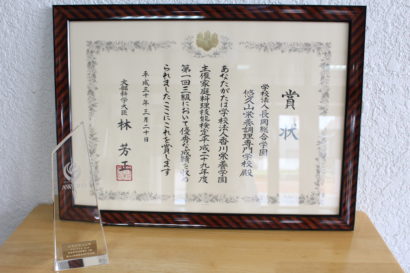 賞状
学校法人長岡総合学園
悠久山栄養調理専門学校殿
あなたがたは学校法人香川栄養学園
主催家庭料理技能検定平成二十九年度
第一回三級において優秀な成績を収め
られましたここにこれを賞します
平成三十年三月二十日
文部科学大臣 林 芳正